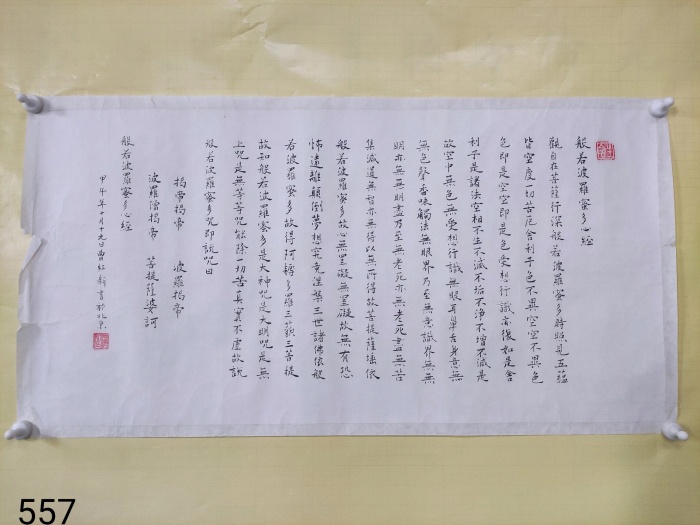 般若波羅蜜多心經
觀自在菩薩行深般若波羅蜜多時照見五蘊
皆空度一切苦厄舍利子色不異空空不異色
色即是空空即是色受想行識亦復如是舍
利子是諸法空相不生不滅不垢不淨不增不減是
故空中無色無受想行識無眼耳鼻舌身意無
無色聲香味觸法無眼界乃至無意識界無無
明亦無無明盡乃至無老死亦無老死盡無苦
集滅道無智亦無得以無所得故菩提薩埵依
般若波羅蜜多故心無罣礙無罣礙故無有恐
怖遠離顛倒夢想究竟涅槃三世諸佛依般
若波羅蜜多故得阿耨多羅三藐三菩提
故知般若波羅蜜多是大神咒是大明咒是無
上咒是無等等咒能除一切苦真實不虛故說
般若波羅蜜多咒即說咒曰
揭帝揭帝 波羅揭帝
波羅僧揭帝 菩提薩婆訶
般若波羅蜜多心經
甲午年十月十九日曹紅新書於北京
557